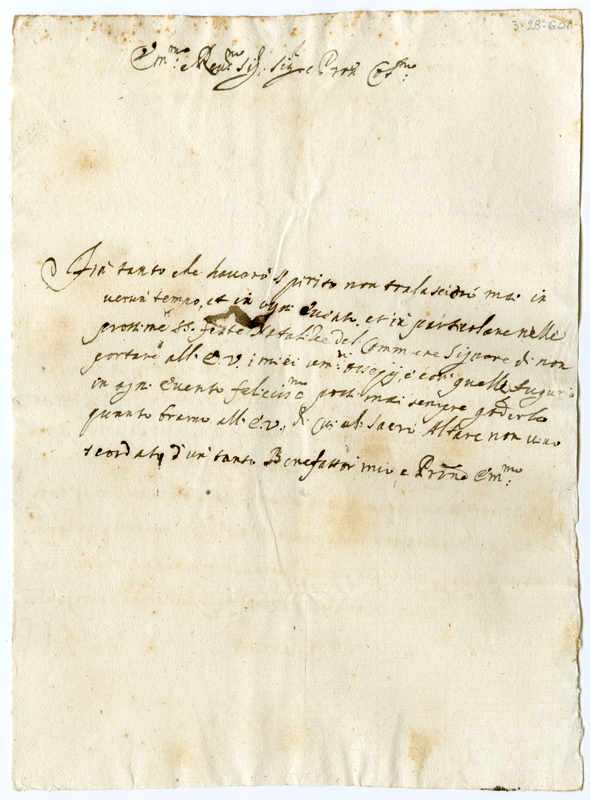 3-28-60A
Em:mo e Rev:mo Sig:r Sig:r e Pron Col:mo
Fin tanto che haverò spirito non tralascierò mai in
verun tempo, et in ogni evento, et in particolare nelle
prossime SS. feste Natalizie del Commune Signore di non
portare all E. V. i miei um:mi ossequij, e con quelle
in ogni evento felicis:mo possi mai sempre goderlo
quanto bramo all E. V., di cui al Sacro Altare non vivo
scordato d'un tanto Benefattor mio, e Prone Em:mo